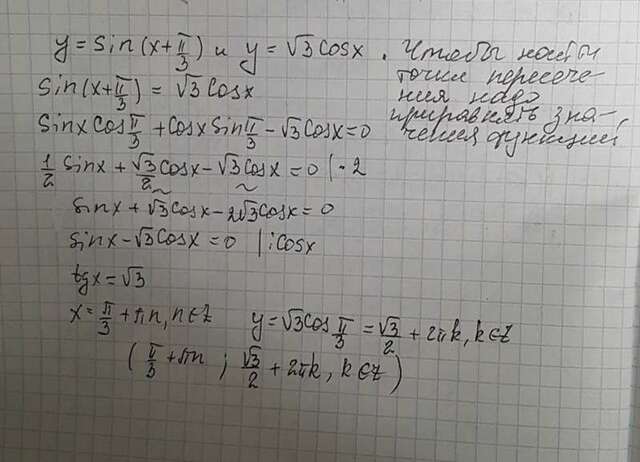 y = sin(x+π/3) и y = √3 cosx. Чтобы найти
точки пересече-
ния надо
приравнять зна-
чения функций.
sin(x+π/3) = √3 cosx
sinx cos π/3 + cosx sin π/3 - √3 cosx = 0
1/2 sinx + √3/2 cosx - √3 cosx = 0 | · 2
sinx + √3 cosx - 2√3 cosx = 0
sinx - √3 cosx = 0 | : cosx
tgx = √3
x = π/3 + πn, n∈Z y = √3 cos π/3 = √3/2 + 2πk, k∈Z
(π/3 + πn ; √3/2 + 2πk, k∈Z)